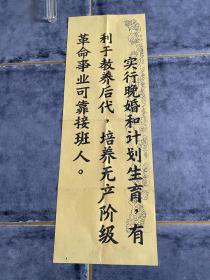 实行晚婚和计划生育，有
利于教养后代，培养无产阶级
革命事业可靠接班人。